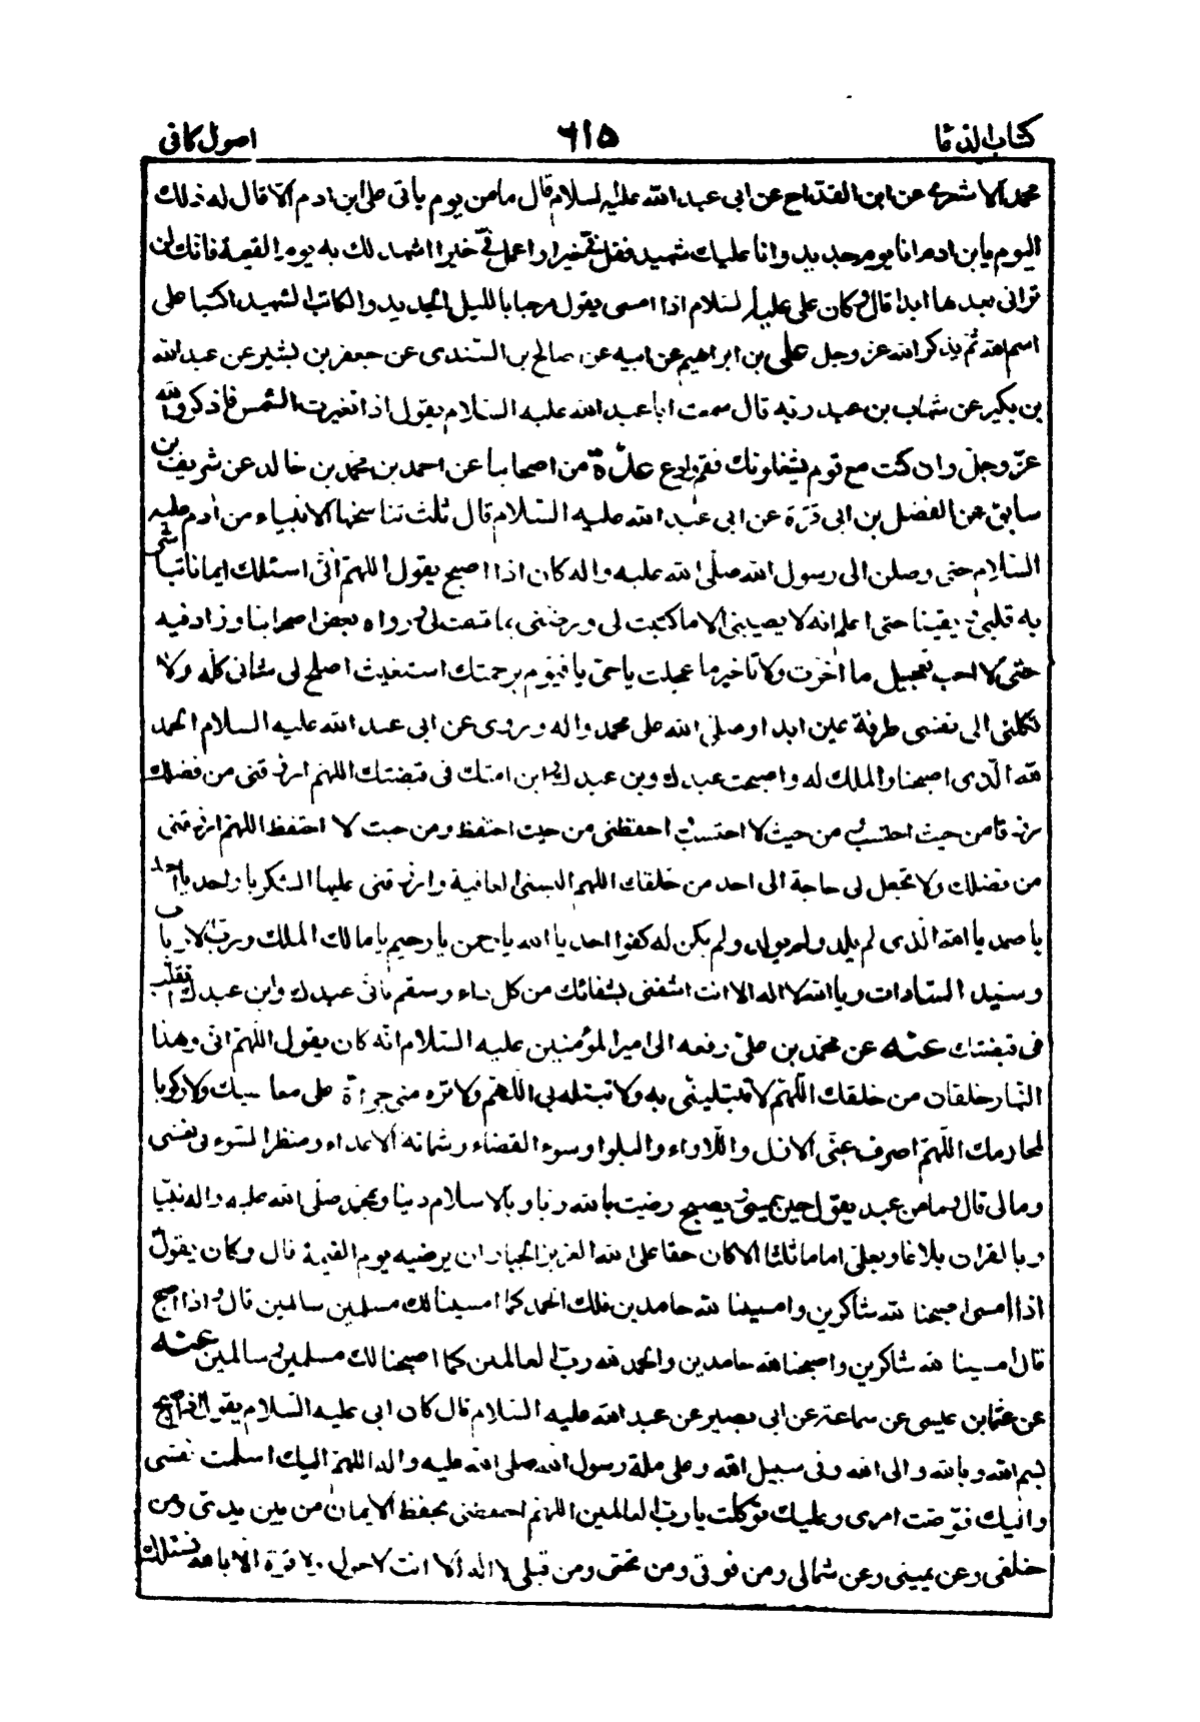 كتاب الدعا ٦١٥ اصول كافى
محمد الاشعرى عن ابن القداح عن ابى عبد الله عليه السلام قال ما من يوم ياتى على ابن ادم الا قال له ذلك
اليوم يا بن ادم انا يوم جديد وانا عليك شهيد فقل فىّ خيرا واعمل فىّ خيرا اشهد لك به يوم القيمة فانك لن
ترانى بعدها ابدا قال وكان على عليه السلام اذا امسى يقول مرحبا بالليل الجديد والكاتب الشهيد اكتبا على
اسم الله ثم يذكر الله عز وجل على بن ابراهيم عن ابيه عن صالح بن السندى عن جعفر بن بشير عن عبد الله
بن بكير عن شهاب بن عبد ربه قال سمعت ابا عبد الله عليه السلام يقول اذا تغيرت الشمس فاذكر الله
عزّ وجلّ وان كنت مع قوم يشغلونك فقم وادع عدّة من اصحابنا عن احمد بن محمد بن خالد عن شريف بن
سابق عن الفضل بن ابى قرّة عن ابى عبد الله عليه السّلام قال ثلث تناسخها الانبياء من ادم عليه
السّلام حتى وصلن الى رسول الله صلّى الله عليه واله كان اذا اصبح يقول اللهمّ انّى اسئلك ايمانا تباشر
به قلبى ويقينا حتى اعلم انه لا يصيبنى الا ما كتبت لى ورضنى بما قسمت لى ورواه بعض اصحابنا وزاد فيه
حتّى لا احب تعجيل ما اخّرت ولا تاخير ما عجلت يا حىّ يا قيّوم برحمتك استغيث اصلح لى شانى كلّه ولا
تكلنى الى نفسى طرفة عين ابدا وصلّى الله على محمد واله وروى عن ابى عبد الله عليه السلام الحمد
لله الّذى اصبحنا والملك له واصبحت عبدك وبن عبدك وابن امتك فى قبضتك اللهم ارزقنى من فضلك
رزقا من حيث احتسب ومن حيث لا احتسب واحفظنى من حيث احتفظ ومن حيث لا احتفظ اللهم ارزقنى
من فضلك ولا تجعل لى حاجة الى احد من خلقك اللهم البسنى العافية وارزقنى عليها الشكر يا واحد يا احد
يا صمد يا الله الّذى لم يلد ولم يولد ولم يكن له كفوا احد يا الله يا رحمن يا رحيم يا مالك الملك ورب الارباب
وسيد السّادات ويا الله لا اله الا انت اشفنى بشفائك من كل داء وسقم فانّى عبدك وابن عبدك اتقلب
فى قبضتك عنه عن محمّد بن علىّ رفعه الى امير المؤمنين عليه السّلام انّه كان يقول اللّهمّ انّى وهذا
النّهار خلقان من خلقك اللّهمّ لا تبتلينى به ولا تبتله بى اللّهمّ ولا تره منى جرءة على معاصيك ولا ركوبا
لمحارمك اللّهمّ اصرف عنّى الازل واللّاواء والبلوا وسوء القضاء وشماتة الاعداء ومنظر السّوء فى نفسى
ومالى قال وما من عبد يقول حين يمسى ويصبح رضيت بالله ربّا وبالاسلام دينا وبمحمّد صلّى الله عليه واله نبيّا
وبالقران بلاغا وبعلى اماما ثلثا الا كان حقا على الله العزيز الجبار ان يرضيه يوم القيمة قال وكان يقول
اذا امسى اصبحنا لله شاكرين وامسينا لله حامدين فلك الحمد كما امسينا لك مسلمين سالمين قال واذا اصبح
قال امسينا لله شاكرين واصبحنا لله حامدين والحمد لله ربّ العالمين كما اصبحنا لك مسلمين وسالمين عنه
عن عثمان بن عيسى عن سماعة عن ابى بصير عن عبد الله عليه السّلام قال كان ابى عليه السّلام يقول اذا اصبح
بسم الله وبالله والى الله وفى سبيل الله وعلى ملة رسول الله صلى الله عليه واله اللهمّ اليك اسلمت نفسى
واليك فوّضت امرى وعليك توكلت يا ربّ العالمين اللهم احفظنى بحفظ الايمان من بين يدىّ ومن
خلفى وعن يمينى وعن شمالى ومن فوقى ومن تحتى ومن قبلى لا اله الا انت لا حول ولا قوة الا بالله نسئلك